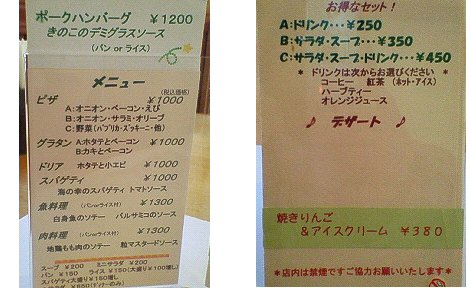 ポークハンバーグ ¥1200
きのこのデミグラスソース
(パン or ライス)
メニュー
(税込価格)
ピザ ¥1000
A:オニオン・ベーコン・えび
B:オニオン・サラミ・オリーブ
C:野菜(パプリカ・ズッキーニ・他)
グラタン A:ホタテとベーコン ¥1000
B:カキとベーコン
ドリア ホタテと小エビ ¥1000
スパゲティ ¥1000
海の幸のスパゲティ トマトソース
魚料理 (パンorライス付) ¥1300
白身魚のソテー バルサミコのソース
肉料理 (パンorライス付) ¥1300
地鶏もも肉のソテー 粒マスタードソース
スープ ¥200 ミニサラダ ¥200
パン ¥150 ライス ¥150(大盛り¥100増し)
スパゲティ大盛り¥150増し
お得なセット!
A:ドリンク・・・¥250
B:サラダ・スープ・・・¥350
C:サラダ・スープ・ドリンク・・・¥450
* ドリンクは次からお選びください *
コーヒー 紅茶 (ホット・アイス)
ハーブティー
オレンジジュース
♪ デザート ♪
焼きりんご
&アイスクリーム ¥380
*店内は禁煙ですご協力お願いいたします*